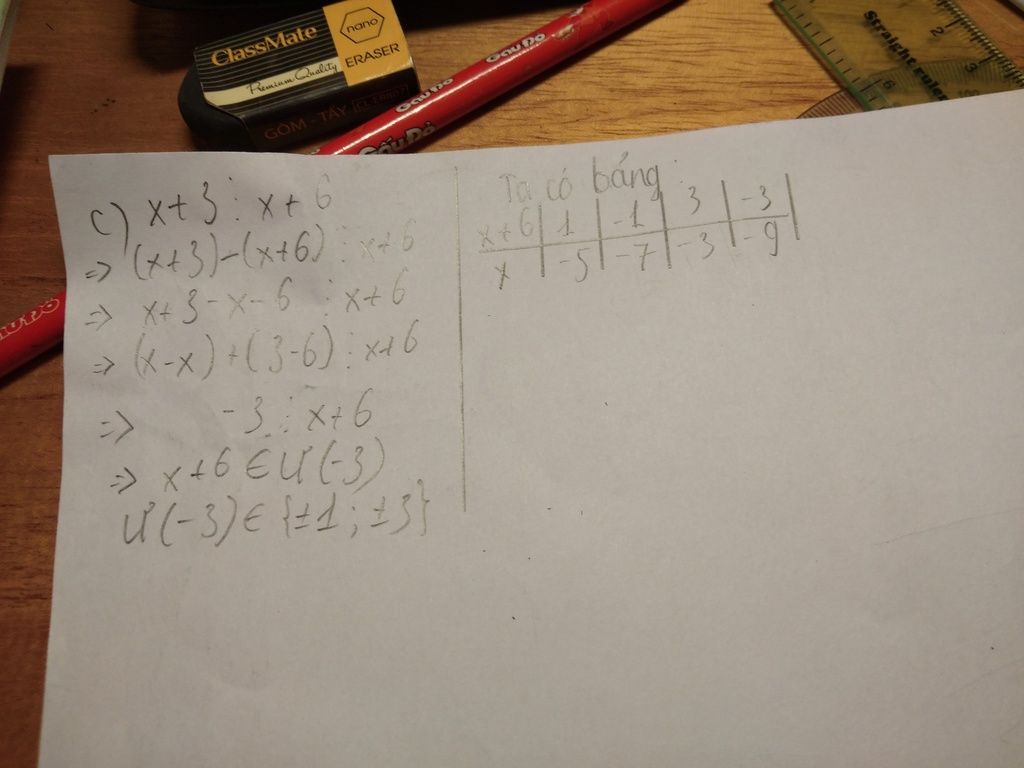 ClassMate
Premium Quality
nano
ERASER
GÔM - TẨY
Gấu Đỏ
Gấu Đỏ
Gấu Đỏ
Straight ruler
2
3
c) x+3 ⋮ x+6
=> (x+3)-(x+6) ⋮ x+6
=> x+3-x-6 ⋮ x+6
=> (x-x)+(3-6) ⋮ x+6
=> -3 ⋮ x+6
=> x+6 ∈ Ư(-3)
Ư(-3) ∈ {±1; ±3}
Ta có bảng
x+6 | 1 | -1 | 3 | -3 |
x | -5 | -7 | -3 | -9